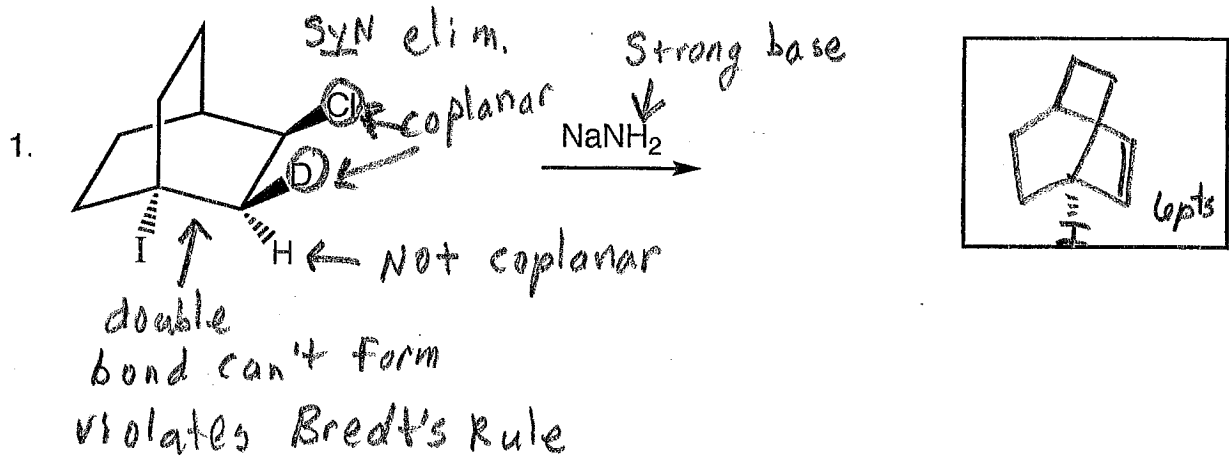 SYN elim.
Strong base
Cl
coplanar
1.
NaNH2
D
6pts
I
H
Not coplanar
I
double
bond can't form
violates Bredt's Rule